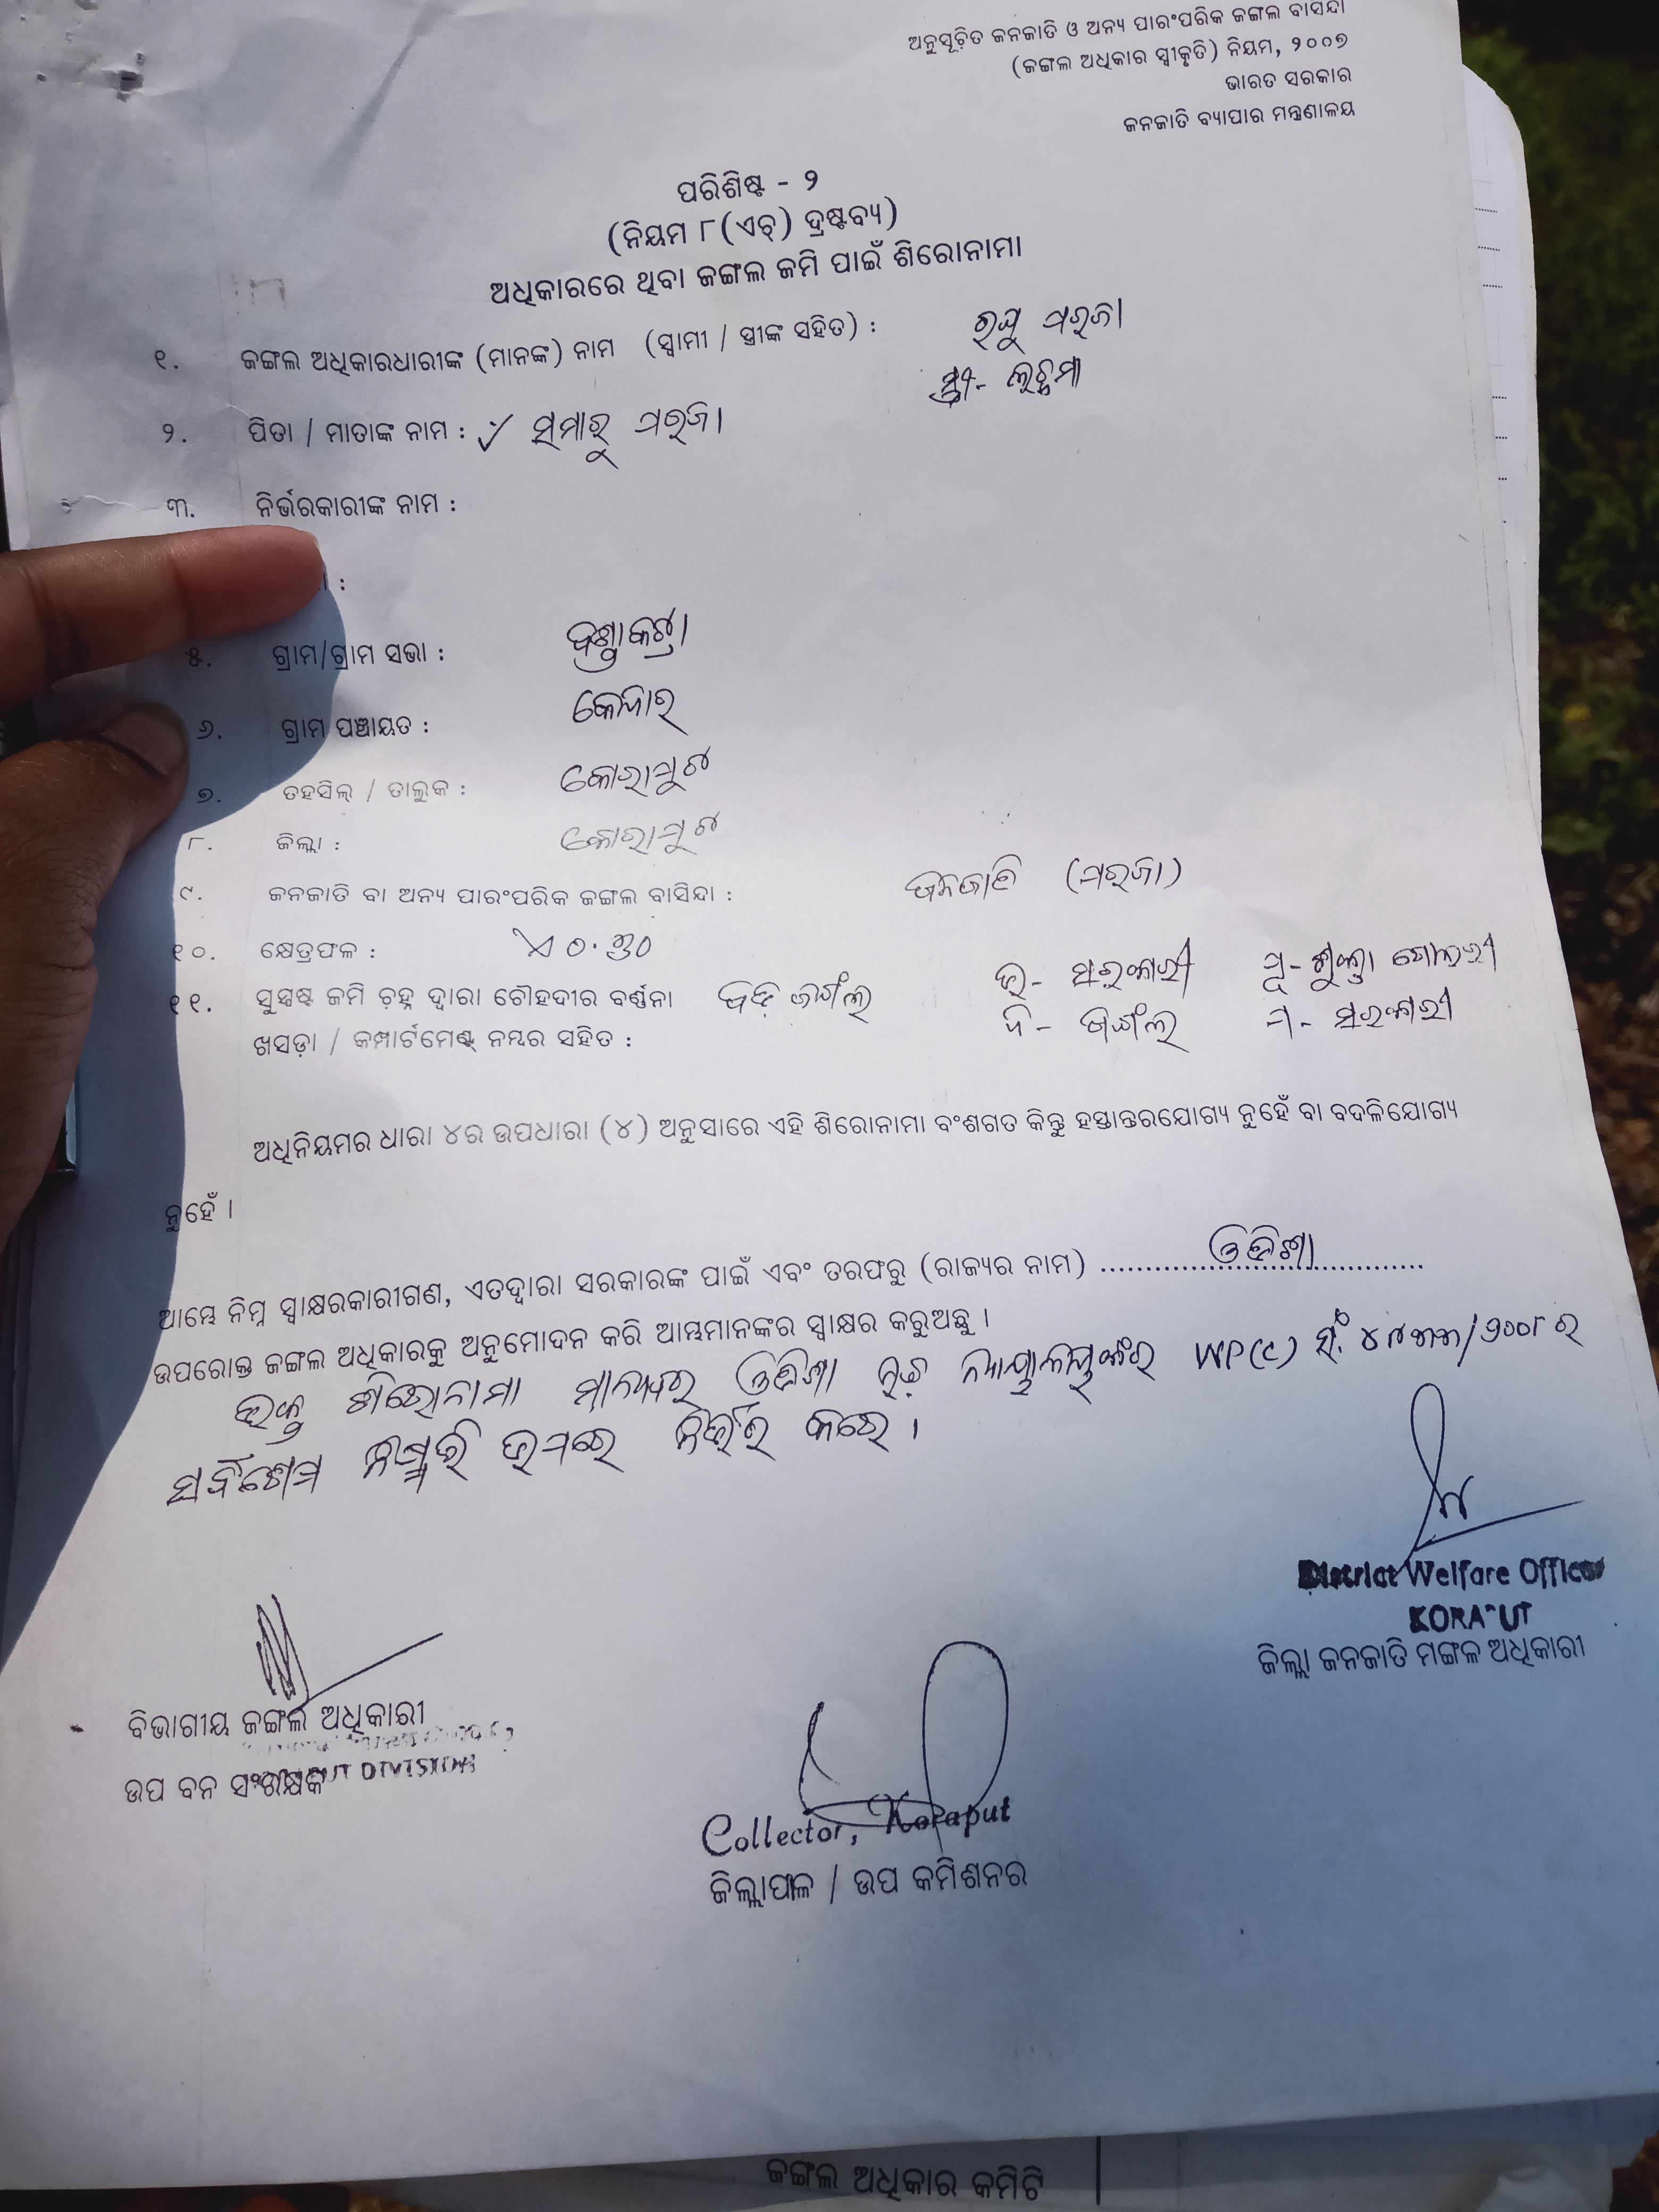 ଅନୁସୂଚିତ ଜନଜାତି ଓ ଅନ୍ୟ ପାରଂପରିକ ଜଙ୍ଗଲ ବାସିନ୍ଦା
(ଜଙ୍ଗଲ ଅଧିକାର ସ୍ୱୀକୃତି) ନିୟମ, ୨୦୦୭
ଭାରତ ସରକାର
ଜନଜାତି ବ୍ୟାପାର ମନ୍ତ୍ରଣାଳୟ
ପରିଶିଷ୍ଟ - ୨
(ନିୟମ ୮(ଏଚ୍) ଦ୍ରଷ୍ଟବ୍ୟ)
ଅଧିକାରରେ ଥିବା ଜଙ୍ଗଲ ଜମି ପାଇଁ ଶିରୋନାମା
୧. ଜଙ୍ଗଲ ଅଧିକାରଧାରୀଙ୍କ (ମାନଙ୍କ) ନାମ (ସ୍ୱାମୀ / ସ୍ତ୍ରୀଙ୍କ ସହିତ) : ରଘୁ ପରଜା
ସ୍ତ୍ରୀ-
୨. ପିତା / ମାତାଙ୍କ ନାମ : ସମାରୁ ପରଜା
୩. ନିର୍ଭରକାରୀଙ୍କ ନାମ :
୫. ଗ୍ରାମ/ଗ୍ରାମ ସଭା :
୬. ଗ୍ରାମ ପଞ୍ଚାୟତ : କେନ୍ଦାର
୭. ତହସିଲ୍ / ତାଲୁକ : କୋରାପୁଟ
୮. ଜିଲ୍ଲା : କୋରାପୁଟ
୯. ଜନଜାତି ବା ଅନ୍ୟ ପାରଂପରିକ ଜଙ୍ଗଲ ବାସିନ୍ଦା : ଜନଜାତି (ପରଜା)
୧୦. କ୍ଷେତ୍ରଫଳ :
୧୧. ସୁସ୍ପଷ୍ଟ ଜମି ଚିହ୍ନ ଦ୍ୱାରା ଚୌହଦୀର ବର୍ଣ୍ଣନା ଜଙ୍ଗଲ ଉ- ସରକାରୀ ପୂ-
ଖସଡ଼ା / କମ୍ପାର୍ଟମେଣ୍ଟ୍ ନମ୍ବର ସହିତ : ଦ- ଜଙ୍ଗଲ ପ- ସରକାରୀ
ଅଧିନିୟମର ଧାରା ୪ର ଉପଧାରା (୪) ଅନୁସାରେ ଏହି ଶିରୋନାମା ବଂଶଗତ କିନ୍ତୁ ହସ୍ତାନ୍ତରଯୋଗ୍ୟ ନୁହେଁ ବା ବଦଳିଯୋଗ୍ୟ
ନୁହେଁ ।
ଆମ୍ଭେ ନିମ୍ନ ସ୍ୱାକ୍ଷରକାରୀଗଣ, ଏତଦ୍ୱାରା ସରକାରଙ୍କ ପାଇଁ ଏବଂ ତରଫରୁ (ରାଜ୍ୟର ନାମ) ଓଡ଼ିଶା
ଉପରୋକ୍ତ ଜଙ୍ଗଲ ଅଧିକାରକୁ ଅନୁମୋଦନ କରି ଆମ୍ଭମାନଙ୍କର ସ୍ୱାକ୍ଷର କରୁଅଛୁ ।
ଉକ୍ତ ଶିରୋନାମା ମାନ୍ୟବର ଓଡ଼ିଶା ଉଚ୍ଚ ନ୍ୟାୟାଳୟଙ୍କର WP(C) ସଂ. ୪୯୩୩/୨୦୦୮ ର
ସର୍ବଶେଷ ନିଷ୍ପତ୍ତି ଉପରେ ନିର୍ଭର କରେ ।
District Welfare Officer
KORAPUT
ଜିଲ୍ଲା ଜନଜାତି ମଙ୍ଗଳ ଅଧିକାରୀ
ବିଭାଗୀୟ ଜଙ୍ଗଲ ଅଧିକାରୀ
DIVISION
ଉପ ବନ ସଂରକ୍ଷକ
Collector, Koraput
ଜିଲ୍ଲାପାଳ / ଉପ କମିଶନର
ଜଙ୍ଗଲ ଅଧିକାର କମିଟି